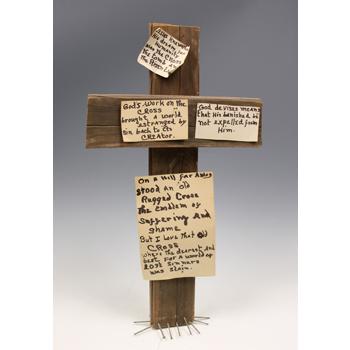 his dream for
humanity
was the CROSS
the Tomb and
the
God's Work on the
CROSS
brought a world
estranged by
sin back to its
CREATOR.
God devises means
that His banished be
not expelled from
Him.
On A Hill far Away
Stood an old
Rugged Cross
The Emblem of
Suffering And
Shame
But I Love that Old
CROSS
where the dearest And
best for a world of
lost Sinners
was slain.